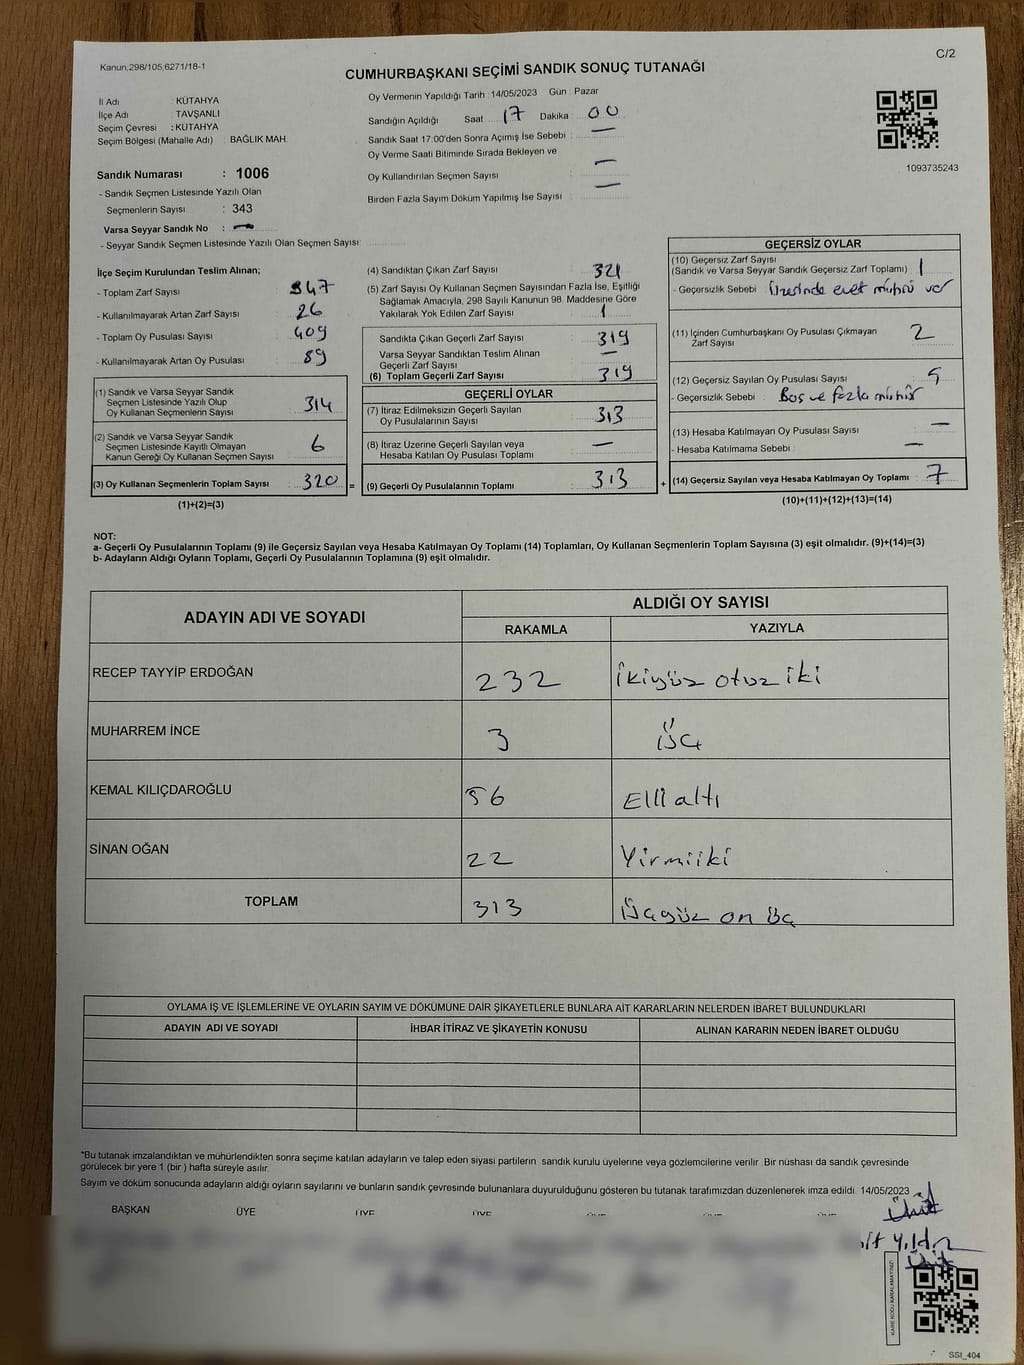 Kanun,298/105,6271/18-1
C/2
CUMHURBAŞKANI SEÇİMİ SANDIK SONUÇ TUTANAĞI
İl Adı : KÜTAHYA
İlçe Adı : TAVŞANLI
Seçim Çevresi : KÜTAHYA
Seçim Bölgesi (Mahalle Adı) : BAĞLIK MAH.
Sandık Numarası : 1006
- Sandık Seçmen Listesinde Yazılı Olan
Seçmenlerin Sayısı : 343
Varsa Seyyar Sandık No : —
- Seyyar Sandık Seçmen Listesinde Yazılı Olan Seçmen Sayısı:
Oy Vermenin Yapıldığı Tarih : 14/05/2023 Gün : Pazar
Sandığın Açıldığı Saat 17 Dakika 00
Sandık Saat 17:00'den Sonra Açımış İse Sebebi : —
Oy Verme Saati Bitiminde Sırada Bekleyen ve
Oy Kullandırılan Seçmen Sayısı —
Birden Fazla Sayım Döküm Yapılmış İse Sayısı : —
1093735243
İlçe Seçim Kurulundan Teslim Alınan;
- Toplam Zarf Sayısı 347
- Kullanılmayarak Artan Zarf Sayısı 26
- Toplam Oy Pusulası Sayısı 409
- Kullanılmayarak Artan Oy Pusulası 89
(1) Sandık ve Varsa Seyyar Sandık
Seçmen Listesinde Yazılı Olup
Oy Kullanan Seçmenlerin Sayısı 314
(2) Sandık ve Varsa Seyyar Sandık
Seçmen Listesinde Kayıtlı Olmayan
Kanun Gereği Oy Kullanan Seçmen Sayısı 6
(3) Oy Kullanan Seçmenlerin Toplam Sayısı 320 =
(1)+(2)=(3)
(4) Sandıktan Çıkan Zarf Sayısı 321
(5) Zarf Sayısı Oy Kullanan Seçmen Sayısından Fazla İse, Eşitliği
Sağlamak Amacıyla, 298 Sayılı Kanunun 98. Maddesine Göre
Yakılarak Yok Edilen Zarf Sayısı 1
Sandıkta Çıkan Geçerli Zarf Sayısı 319
Varsa Seyyar Sandıktan Teslim Alınan
Geçerli Zarf Sayısı —
(6) Toplam Geçerli Zarf Sayısı 319
GEÇERLİ OYLAR
(7) İtiraz Edilmeksizin Geçerli Sayılan
Oy Pusulalarının Sayısı 313
(8) İtiraz Üzerine Geçerli Sayılan veya
Hesaba Katılan Oy Pusulası Toplamı —
(9) Geçerli Oy Pusulalarının Toplamı 313 +
GEÇERSİZ OYLAR
(10) Geçersiz Zarf Sayısı
(Sandık ve Varsa Seyyar Sandık Geçersiz Zarf Toplamı) : 1
- Geçersizlik Sebebi : Üzerinde evet mührü var
(11) İçinden Cumhurbaşkanı Oy Pusulası Çıkmayan
Zarf Sayısı 2
(12) Geçersiz Sayılan Oy Pusulası Sayısı
- Geçersizlik Sebebi : Boş ve fazla mühür
(13) Hesaba Katılmayan Oy Pusulası Sayısı —
- Hesaba Katılmama Sebebi : —
(14) Geçersiz Sayılan veya Hesaba Katılmayan Oy Toplamı : 7
(10)+(11)+(12)+(13)=(14)
NOT:
a- Geçerli Oy Pusulalarının Toplamı (9) ile Geçersiz Sayılan veya Hesaba Katılmayan Oy Toplamı (14) Toplamları, Oy Kullanan Seçmenlerin Toplam Sayısına (3) eşit olmalıdır. (9)+(14)=(3)
b- Adayların Aldığı Oyların Toplamı, Geçerli Oy Pusulalarının Toplamına (9) eşit olmalıdır.
ADAYIN ADI VE SOYADI
ALDIĞI OY SAYISI
RAKAMLA YAZIYLA
RECEP TAYYİP ERDOĞAN 232 İkiyüz otuz iki
MUHARREM İNCE 3 Üç
KEMAL KILIÇDAROĞLU 56 Elli altı
SİNAN OĞAN 22 Yirmiiki
TOPLAM 313 Üçyüz on üç
OYLAMA İŞ VE İŞLEMLERİNE VE OYLARIN SAYIM VE DÖKÜMÜNE DAİR ŞİKAYETLERLE BUNLARA AİT KARARLARIN NELERDEN İBARET BULUNDUKLARI
ADAYIN ADI VE SOYADI İHBAR İTİRAZ VE ŞİKAYETİN KONUSU ALINAN KARARIN NEDEN İBARET OLDUĞU
*Bu tutanak imzalandıktan ve mühürlendikten sonra seçime katılan adayların ve talep eden siyasi partilerin sandık kurulu üyelerine veya gözlemcilerine verilir. Bir nüshası da sandık çevresinde
görülecek bir yere 1 (bir ) hafta süreyle asılır.
Sayım ve döküm sonucunda adayların aldığı oyların sayılarını ve bunların sandık çevresinde bulunanlara duyurulduğunu gösteren bu tutanak tarafımızdan düzenlenerek imza edildi. 14/05/2023
BAŞKAN ÜYE ÜYE ÜYE
KARE KODU KARALAMAYINIZ!
SSI_404